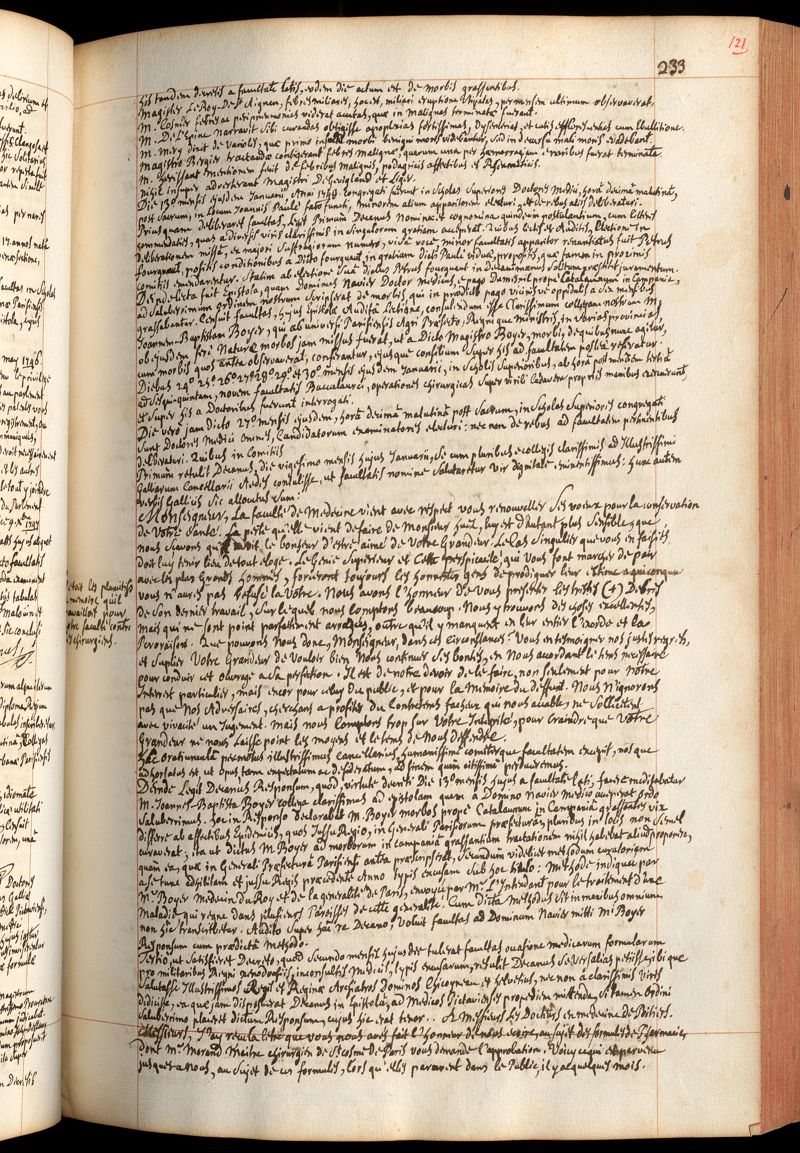 121
233
his tandem decretis a facultate latis, eodem die actum est de morbis grassantibus.
Magister LeRoy De St Aignan, febres miliares, hoc est, miliari eruptione stipatas, per mensem ultimum observaverat,
M. Cosnier febres ac peripneumonias viderat acutas, quæ in malignas terminatæ fuerant.
M. De L'epine narravit sibi curandas obtigisse apoplexias fortissimas, Dysenterias, et cutis efflorescentias cum Ebullitione.
M. Mery dixit de variolis, quæ primo insultu morbi benigni moris videbantur, sed in decursu mali moris evadebant.
Magistro Bergier tractandæ contigerant febres malignæ, quarum una per hæmorragiam e naribus fuerat terminata.
M. herissant mentionem fecit de febribus malignis, podagricis affectibus et Rheumaticis.
nihil insuper adverterant Magistri De Gevigland et Liger.
Die 13º mensis ejusdem Januarii Anni 1748. congregati fuerunt in Scholis Superioribus Doctores Medici, horâ decimâ matutinâ,
post sacrum, in locum Joannis Paulé fato functi, minorem alium apparitorem electuri, et de rebus aliis deliberaturi.
Priusquam deliberaret facultas, legit Primum Decanus nomina et cognomina quindecim postulantium, cum litteris
commendatitiis, quas a diversis viris clarissimis in singulorum gratiam acceperat. Quibus lectis et Auditis, Electione in
deliberationem missâ, ex majori suffragiorum numero, vivâ voce minor facultatis apparitor renuntiatus fuit Petrus
fourquant, positis conditionibus a Dicto fourquant, in gratiam dicti Paulé viduæ, propositis, quæ tamen in proximis
comitiis emendarentur. Statim ab electione suâ Dictus Petrus fourquant in Decani manus solitum præstitit juramentum.
Deinde lecta fuit Epistola, quam Dominus Navier Doctor Medicus, e pago Damesnil prope Catalaunum in Campania,
ad saluberrimum ordinem nostrum scripserat de morbis, qui in prædicto pago vicinisve oppidulis a sex mensibus
grassabantur. Censuit facultas, hujus Epistolæ Auditâ Lectione, consulendum esse Clarissimum collegam nostrum M.
Joannem-Baptistam Boyer, qui ab universi Parisiensis Agri Præfecto, Regni que ministris, in varias provincias,
ob ejusdem ferè Naturæ morbos jam missus fuerat, ut a Dicto Magistro Boyer, morbi, de quibus nunc agitur,
cum morbis quos antea observaverat, conferantur, ejusque consilium super his ad facultatem postea referatur.
Diebus 24º 25º 26º 27º 28º 29º et 30º mensis ejusdem Januarii, in Scholis Superioribus, ab horâ post meridiem tertiâ
ad sesqui-quintam, novem facultatis Baccalaurei, operationes chirurgicas super virili cadavere propriis manibus executi sunt
et super his a Doctoribus fuerunt interrogati.
Die verò jam dicto 27º mensis ejusdem, horâ decimâ matutinâ post Sacrum, in Scholas Superiores congregati
sunt Doctores Medici omnes, Candidatorum examinatores electuri: nec non de rebus ad facultatem pertinentibus
deliberaturi. Quibus in Comitiis
Primum retulit Decanus, die vigesimo mensis hujus Januarii, se cum pluribus e collegis clarissimis ad Illustrissimi
Galliarum Cancellarii Aedes contulisse, ut facultatis nomine salutaretur vir dignitate eminentissimus: hunc autem
verbis Gallicis sic allocutus sum:
Monseigneur, La faculté de Médecine vient avec respect vous renouveller ses voeux pour la conservation
de Votre santé. La perte qu'elle vient de faire de Monsieur huit, luy est d'autant plus sensible, que
nous sçavons qu'il avoit le bonheur d'estre aimé de Votre Grandeur. Le Cas singulier que vous en faisiés,
doit luy tenir lieu de tout eloge. Le Genie Superieur et Cette perspicacité, qui vous font marcher de pair
avec les plus Grands hommes, forceront toujours les honnestes gens de prodiguer leur estime a quiconque
vous n'aurés pas refusé la vôtre. Nous avons l'honneur de vous présenter les tristes (+) Debris
de son dernier travail, sur lequel nous comptons beaucoup. Nous y trouvons des choses excellentes,
mais qui ne sont point parfaitement arrangées, outre qu'il y manquent en leur entier l'exorde et la
Peroraison. Que pouvons Nous donc, Monseigneur, dans ces circonstances? Vous en temoigner nos justes regrets,
et suplier Votre Grandeur de vouloir bien Nous continuer ses bontés, en Nous accordant le tems necessaire
pour conduire cet ouvrage a sa perfection. Il est de notre devoir de le faire, non seulement pour notre
Interest particulier, mais encor pour celuy du public, et pour la Memoire du deffunt. Nous n'ignorons
pas que nos Adversaires, cherchans a profiter du Contretems facheux qui nous accable, ne sollicitent
avec vivacité un Jugement. Mais nous Comptons trop sur Votre Integrité, pour craindre que Votre
Grandeur ne nous laisse point les moyens et le tems de Nous deffendre.
hâc oratiunculâ permotus illustrissimus Cancellarius humanissimè comiterque facultatem excepit, nos que
adhortatus est ut opus tam expectatum ac desideratum, ad finem quàm citissimè perduceremus.
Deinde Legit Decanus Responsum, quod, virtute decreti Die 13º mensis hujus a facultate lati, facere meditabatur
M. Joannes-Baptista Boyer collega clarissimus ad epistolam quam a Domino Navier medico acceperat ordo
saluberrimus. hoc in Responso declarabat M. Boyer morbos propè Catalaunum in Campaniâ grassantes vix
differre ab affectibus Epidemicis, quos Jussu Regio, in Generali Parisiorum præfecturâ, pluribus in locis non semel
curaverat; ita ut Dictus M. Boyer ad morborum in campaniâ grassantium tractationem nihil habebat aliud proponere,
quàm ea, quæ in Generali Præfecturâ Parisiensi anteà præscripserat, secundum videlicet methodum curatoriam
a se tunc adhibitam et jussu Regis præcedente Anno typis excusam sub hoc titulo: Methode indiquée par
Mr Boyer médecin du Roy et de la generalité de Paris, envoyé par Mr L'Intendant pour le traitement d'une
Maladie qui regne dans plusieurs Paroisses de cette generalité. Cum Dicta Methodus sit in manibus omnium,
non hîc transcribetur. Audito super hac re Decano, Voluit facultas ad Dominum Navier mitti Mi Boyer
Responsum cum prædictâ methodo.
Tertio, ut satisfieret Decreto, quod secundo mensis hujus die tulerat facultas occasione medicarum formularum
pro militaribus Regni xenodochiis, inconsultis Medicis, typis excusarum, retulit Decanus se versalias petiisse, ibi que
salutasse Illustrissimos Regis et Reginæ Archiatros Dominos Chicoyneau et Helvetius, nec non a clarissimis viris
didicisse, ea quæ jam disposuerat Decanus in Epistolâ, ad Medicos Pictavienses propediem mittendâ, si tamen ordini
saluberrimo placeret dictum Responsum, cujus hic erat tenor... A Messieurs les Docteurs en medecine de Poitiers.
Messieurs, J'ay receu la lettre que vous nous avés fait l'honneur de nous ecrire, au sujet des formules de Pharmacie,
dont Mr Morand Maitre chirurgien de St cosme de Paris vous demande l'approbation. Voicy ce qui est parvenu
jusques a nous, au sujet de ces formules, lors qu'elles parurent dans le Public, il y a quelques mois.
c'etoit les plaintifs
memoire qu'il
travailloit pour
notre faculté contre
les chirurgiens.